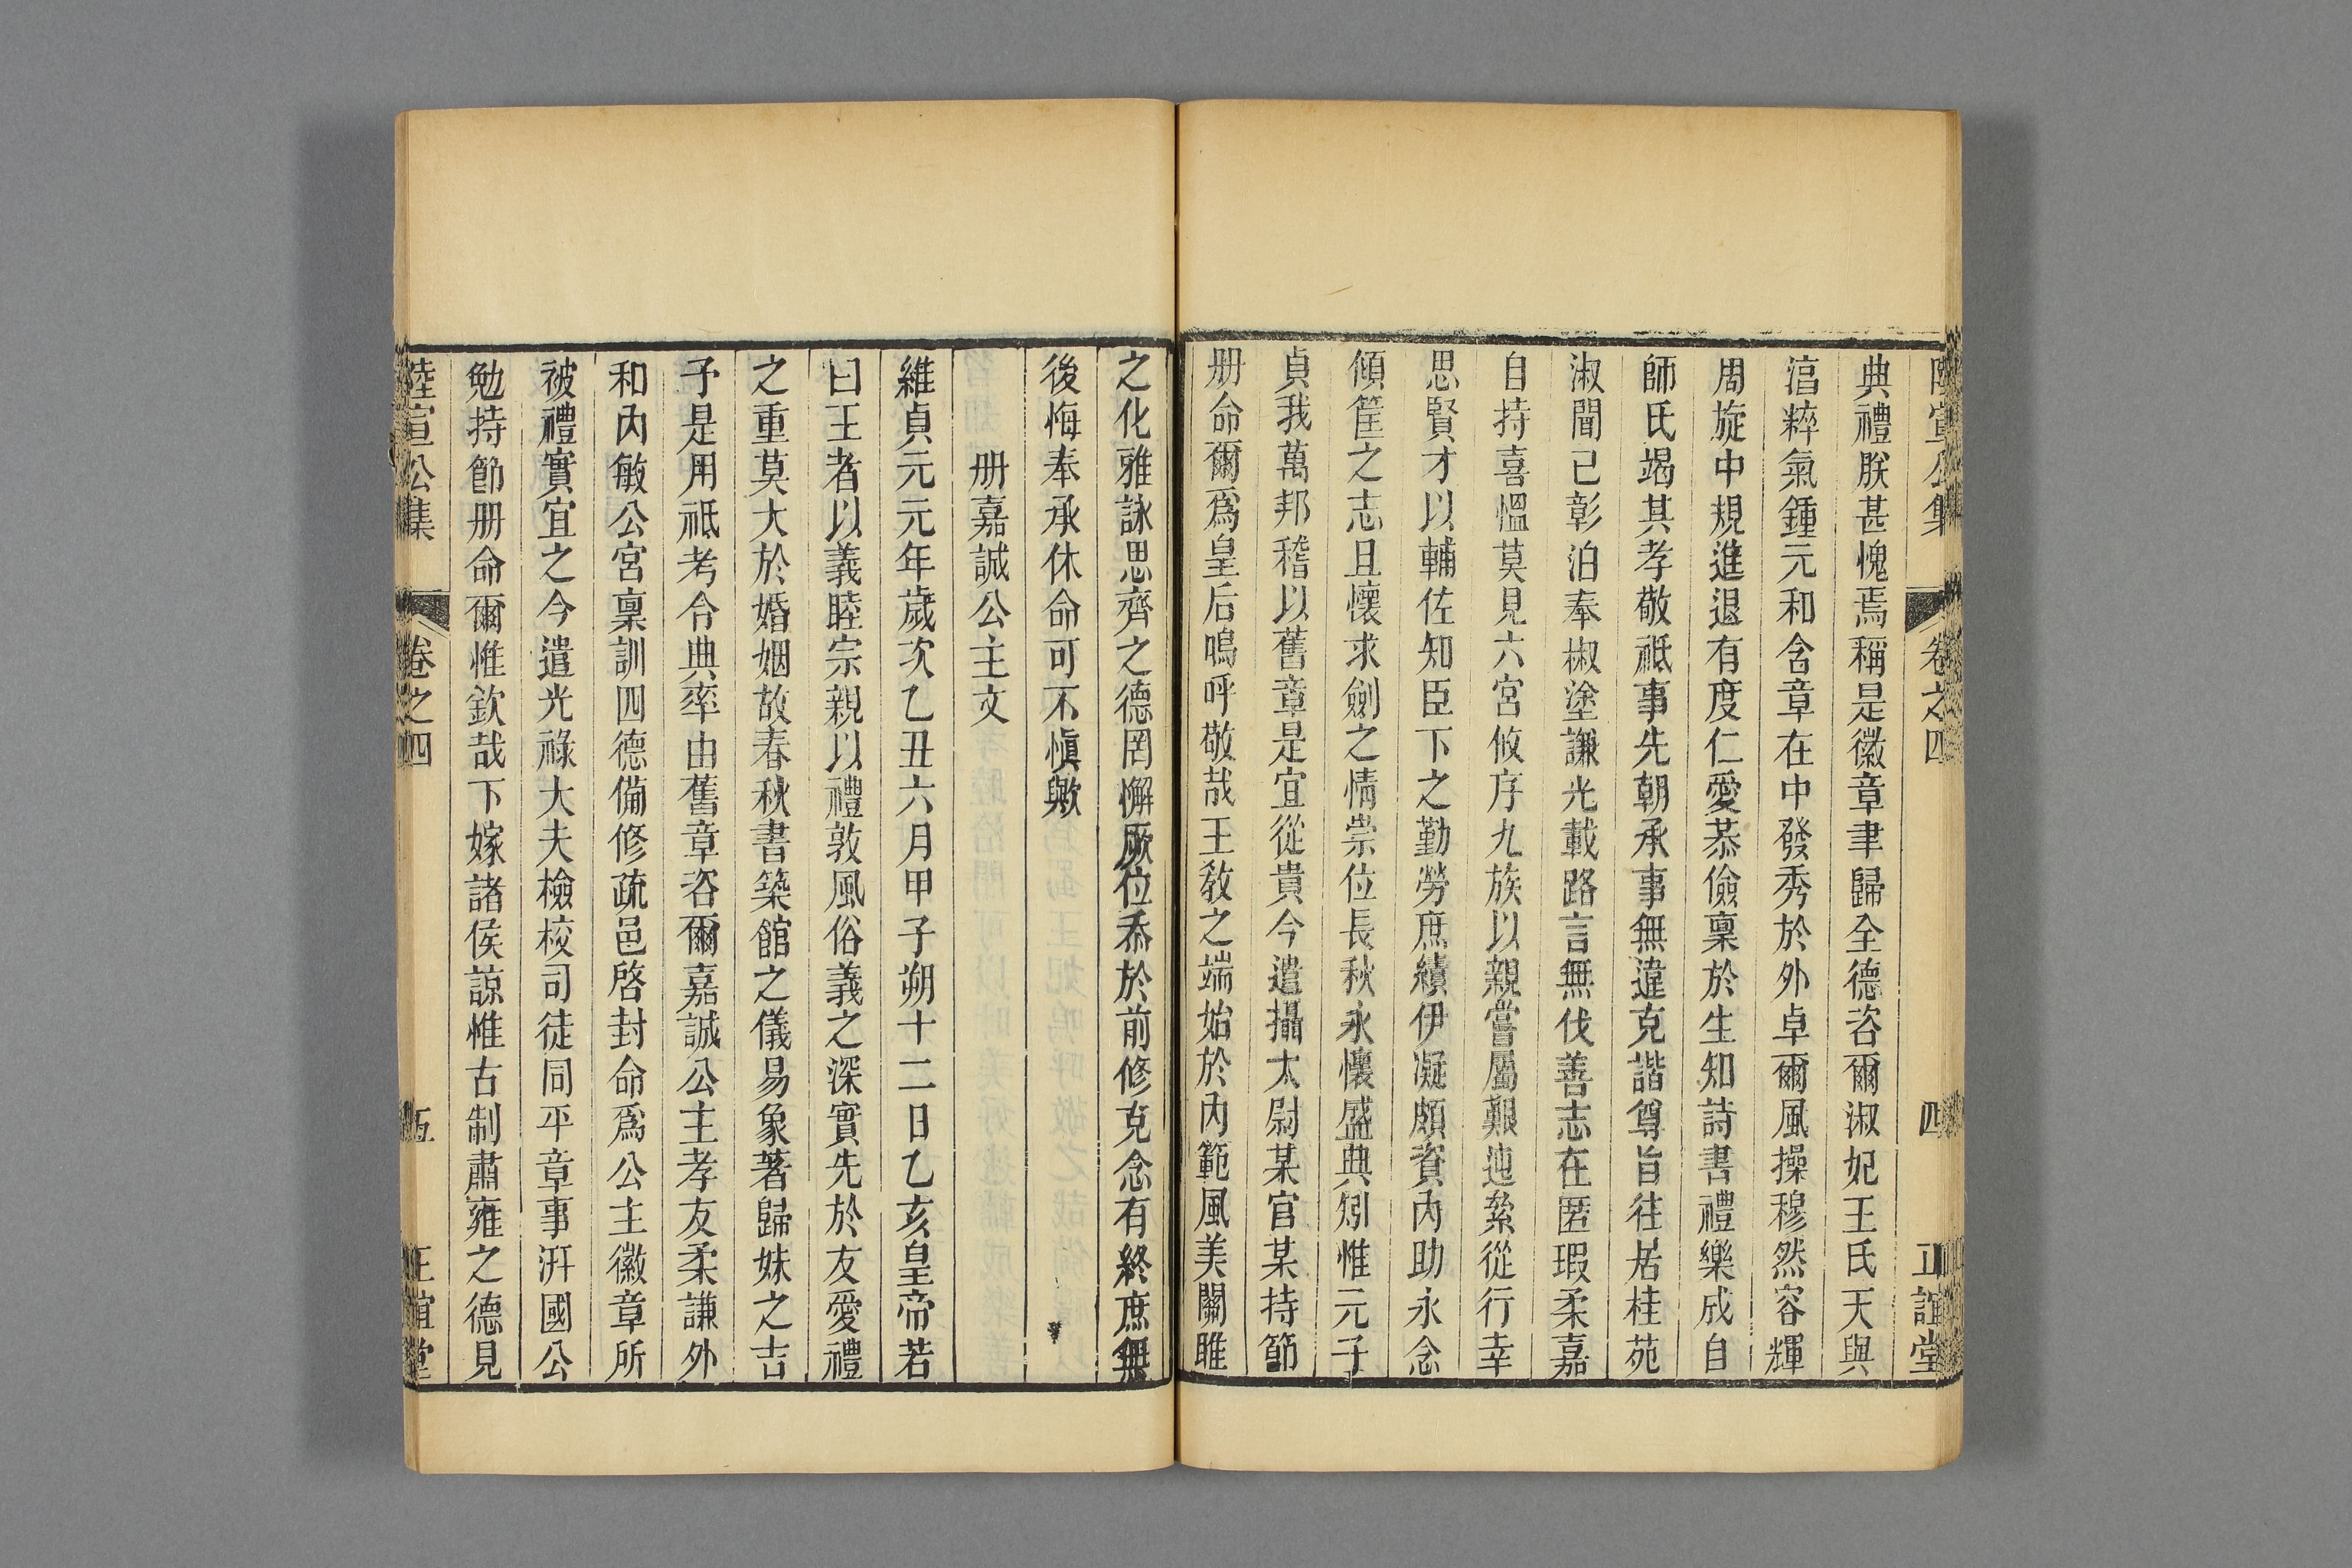 陸宣公集 卷之四 四 正誼堂
典禮朕甚愧焉稱是徽章聿歸全德咨爾淑妃王氏天與
湻粹氣鍾元和含章在中發秀於外卓爾風操穆然容輝
周旋中規進退有度仁愛恭儉稟於生知詩書禮樂成自
師氏竭其孝敬祗事先朝承事無違克諧尊旨往居桂苑
淑聞已彰洎奉椒塗謙光載路言無伐善志在匿瑕柔嘉
自持喜慍莫見六宮攸序九族以親嘗屬艱迍絫從行幸
思賢才以輔佐知臣下之勤勞庶績伊凝頗資內助永念
傾筐之志且懷求劍之情崇位長秋永懷盛典矧惟元子
貞我萬邦稽以舊章是宜從貴今遣攝太尉某官某持節
册命爾爲皇后鳴呼敬哉王敎之端始於內範風美關雎
之化雅詠思齊之德罔懈厥位忝於前修克念有終庶無
後悔奉承休命可不愼歟
册嘉誠公主文
維貞元元年歲次乙丑六月甲子朔十二日乙亥皇帝若
曰王者以義睦宗親以禮敦風俗義之深實先於友愛禮
之重莫大於婚姻故春秋書築館之儀易象著歸妹之吉
予是用祗考令典率由舊章咨爾嘉誠公主孝友柔謙外
和內敏公宮稟訓四德備修疏邑啓封命爲公主徽章所
被禮實宜之今遣光祿大夫檢校司徒同平章事汧國公
勉持節册命爾惟欽哉下嫁諸侯諒惟古制肅雍之德見
陸宣公集 卷之四 五 正誼堂